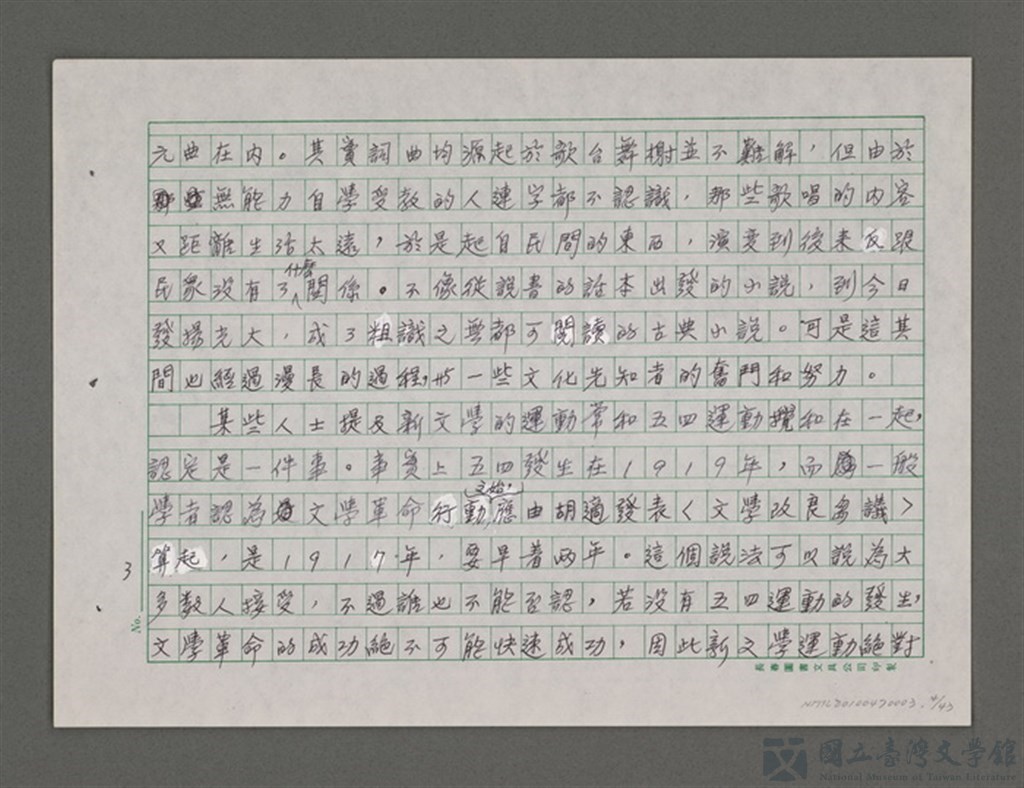 元曲在內。其實詞曲均源起於歌台舞榭並不難解，但由於
無能力自學受教的人連字都不認識，那些歌唱的内容
又距離生活太遠，於是起自民間的東西，演變到後來反跟
民衆没有了什麼關係。不像從說書的話本出發的小說，到今日
發揚光大，成了粗識之無都可閱讀的古典小說。可是這其
間也經過漫長的過程，也一些文化先知者的奮鬥和努力。
某些人士提及新文學的運動常和五四運動攪和在一起，
認定是一件事。事實上五四發生在1919年，而一般
學者認為文學革命行動之始，應由胡適發表〈文學改良芻議〉
算起，是1917年，要早着兩年。這個說法可以說為大
多數人接受，不過誰也不能否認，若没有五四運動的發生，
文學革命的成功絕不可能快速成功，因此新文學運動絕對
3
No.
長春圖書文具公司印製
NMTL20100470003．4/43
國立臺灣文學館
National Museum of Taiwan Literature